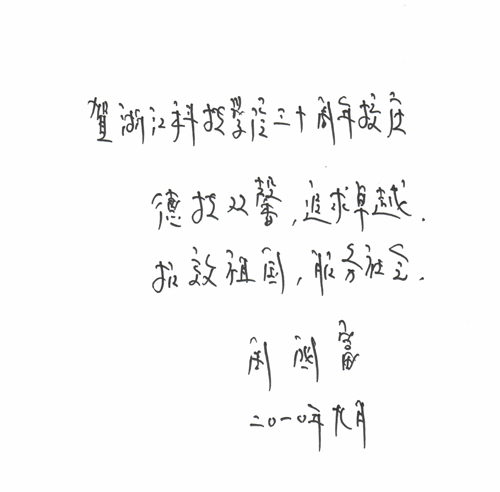 賀浙江科技学院三十周年校庆
德技双馨,追求卓越.
报效祖国,服务社会.
周国富
二〇一〇年九月